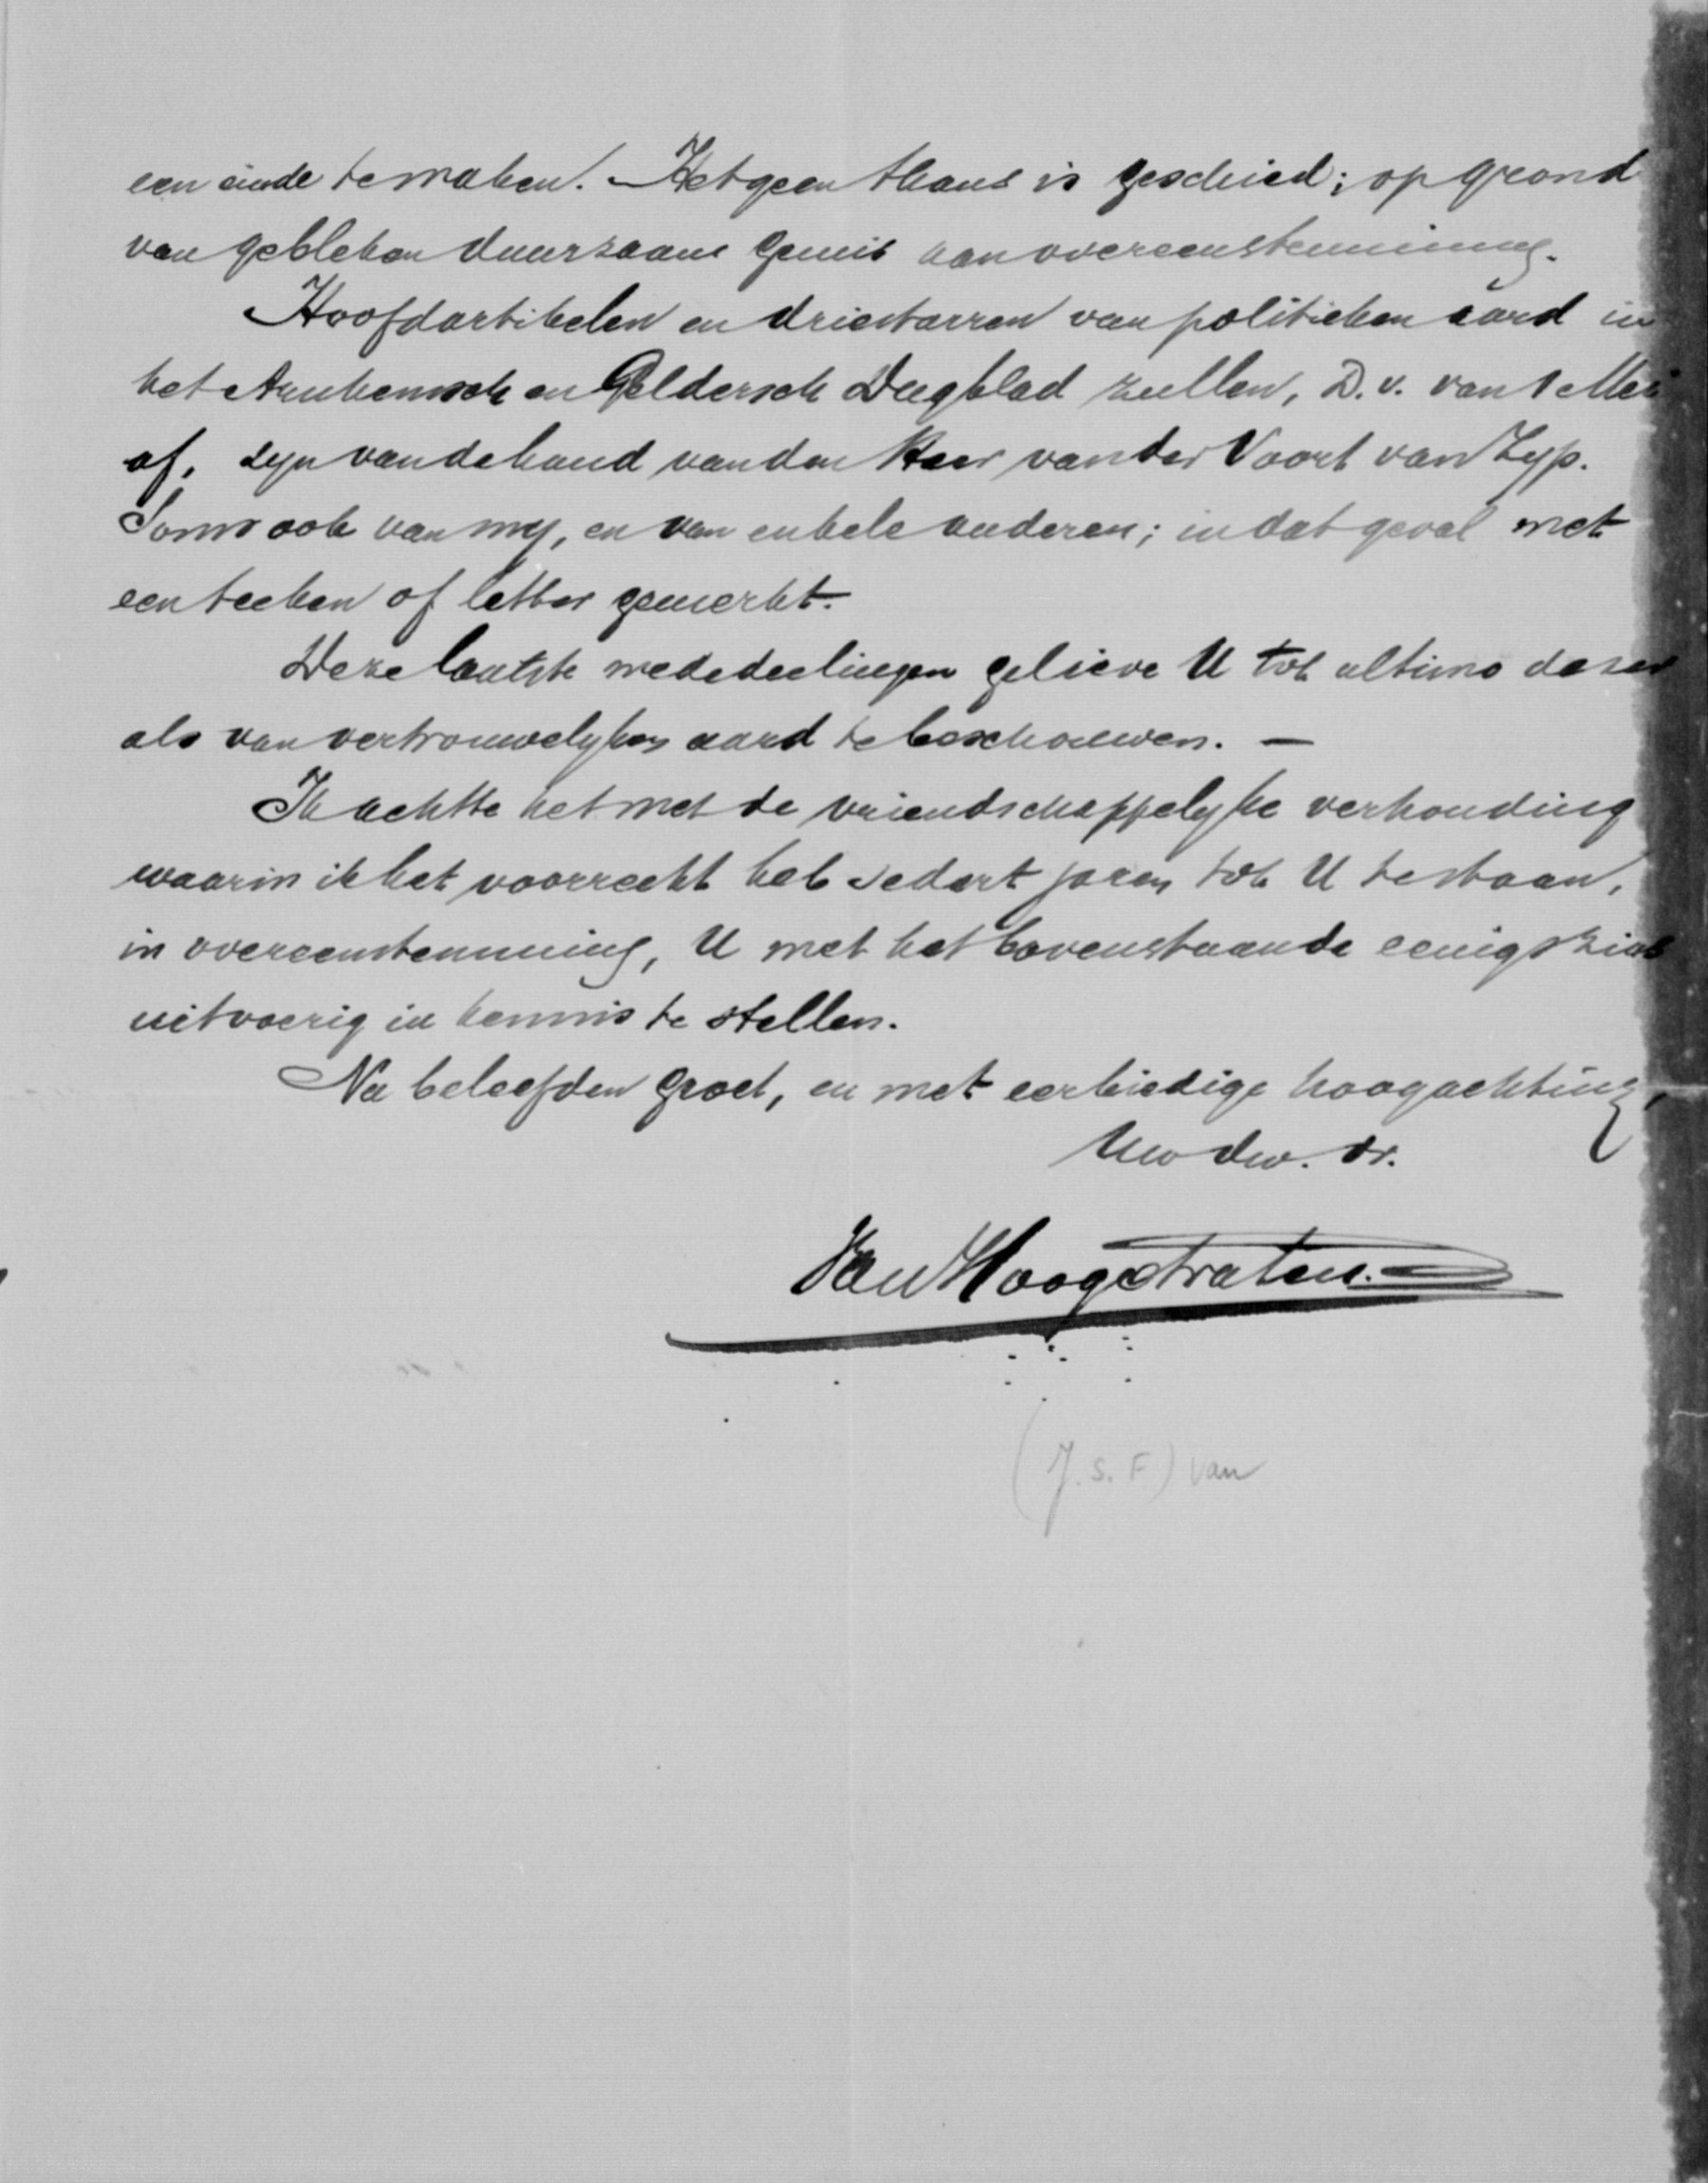 een einde te maken. Hetgeen thans is geschied; op grond
van gebleken duurzaam gemis aan overeenstemming.
Hoofdartikelen en driestarren van politieken aard in
het Arnhemsch en Geldersch Dagblad zullen, D.v. van 1 Mei
af, zyn van de hand van den Heer van der Voort van Zyp.
Soms ook van my, en van enkele anderen; in dat geval met
een teeken of letter gemerkt.
Deze laatste mededeelingen gelieve U tot ultimo dezer
als van vertrouwelyken aard te beschouwen. —
Ik achtte het met de vriendschappelyke verhouding
waarin ik het voorrecht heb sedert jaren tot U te staan,
in overeenstemming, U met het bovenstaande eenigszins
uitvoerig in kennis te stellen.
Na beleefden groet, en met eerbiedige hoogachting,
Uw dw. dr.
Van Hoogstraten.
(J.S.F) van